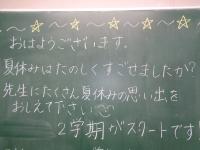 おはようございます。
夏休みはたのしくすごせましたか?
先生にたくさん夏休みの思い出を
おしえて下さい
2学期がスタートです!